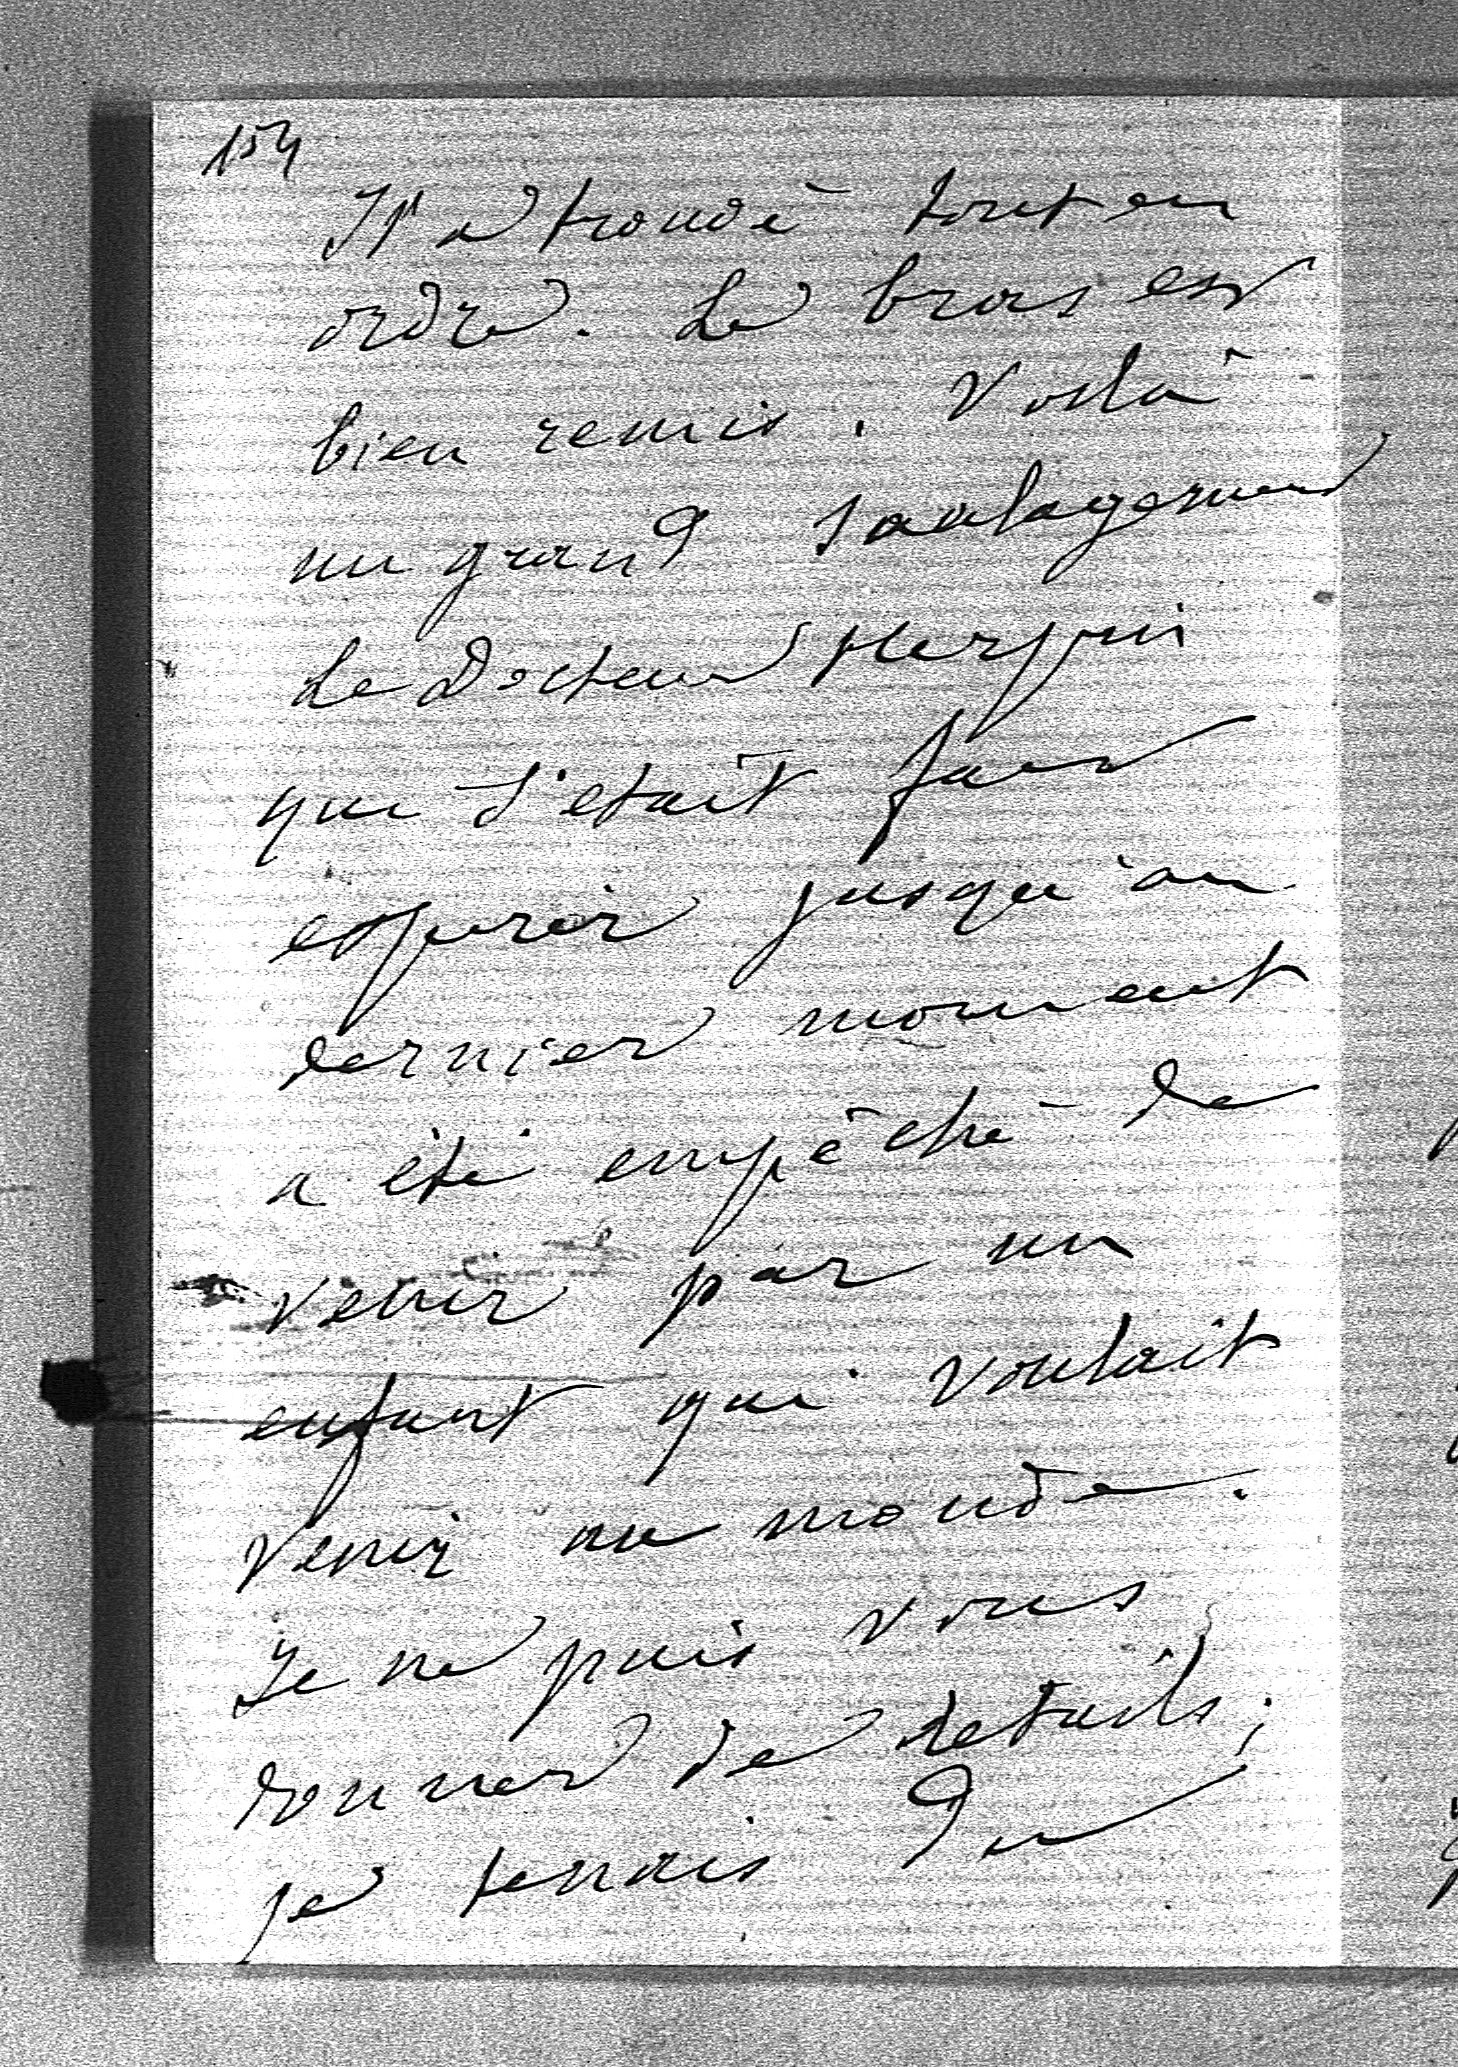 154
Il a trouvé tout en
ordre. Le bras est
bien remis. Voilà
un grand soulagement
Le Docteur Herpin
qui s'était fait
esperer jusqu'au
dernier moment
a été empêché de
venir par un
enfant qui voulait
venir au monde.
Je ne puis vous
donner de details;
je tenais